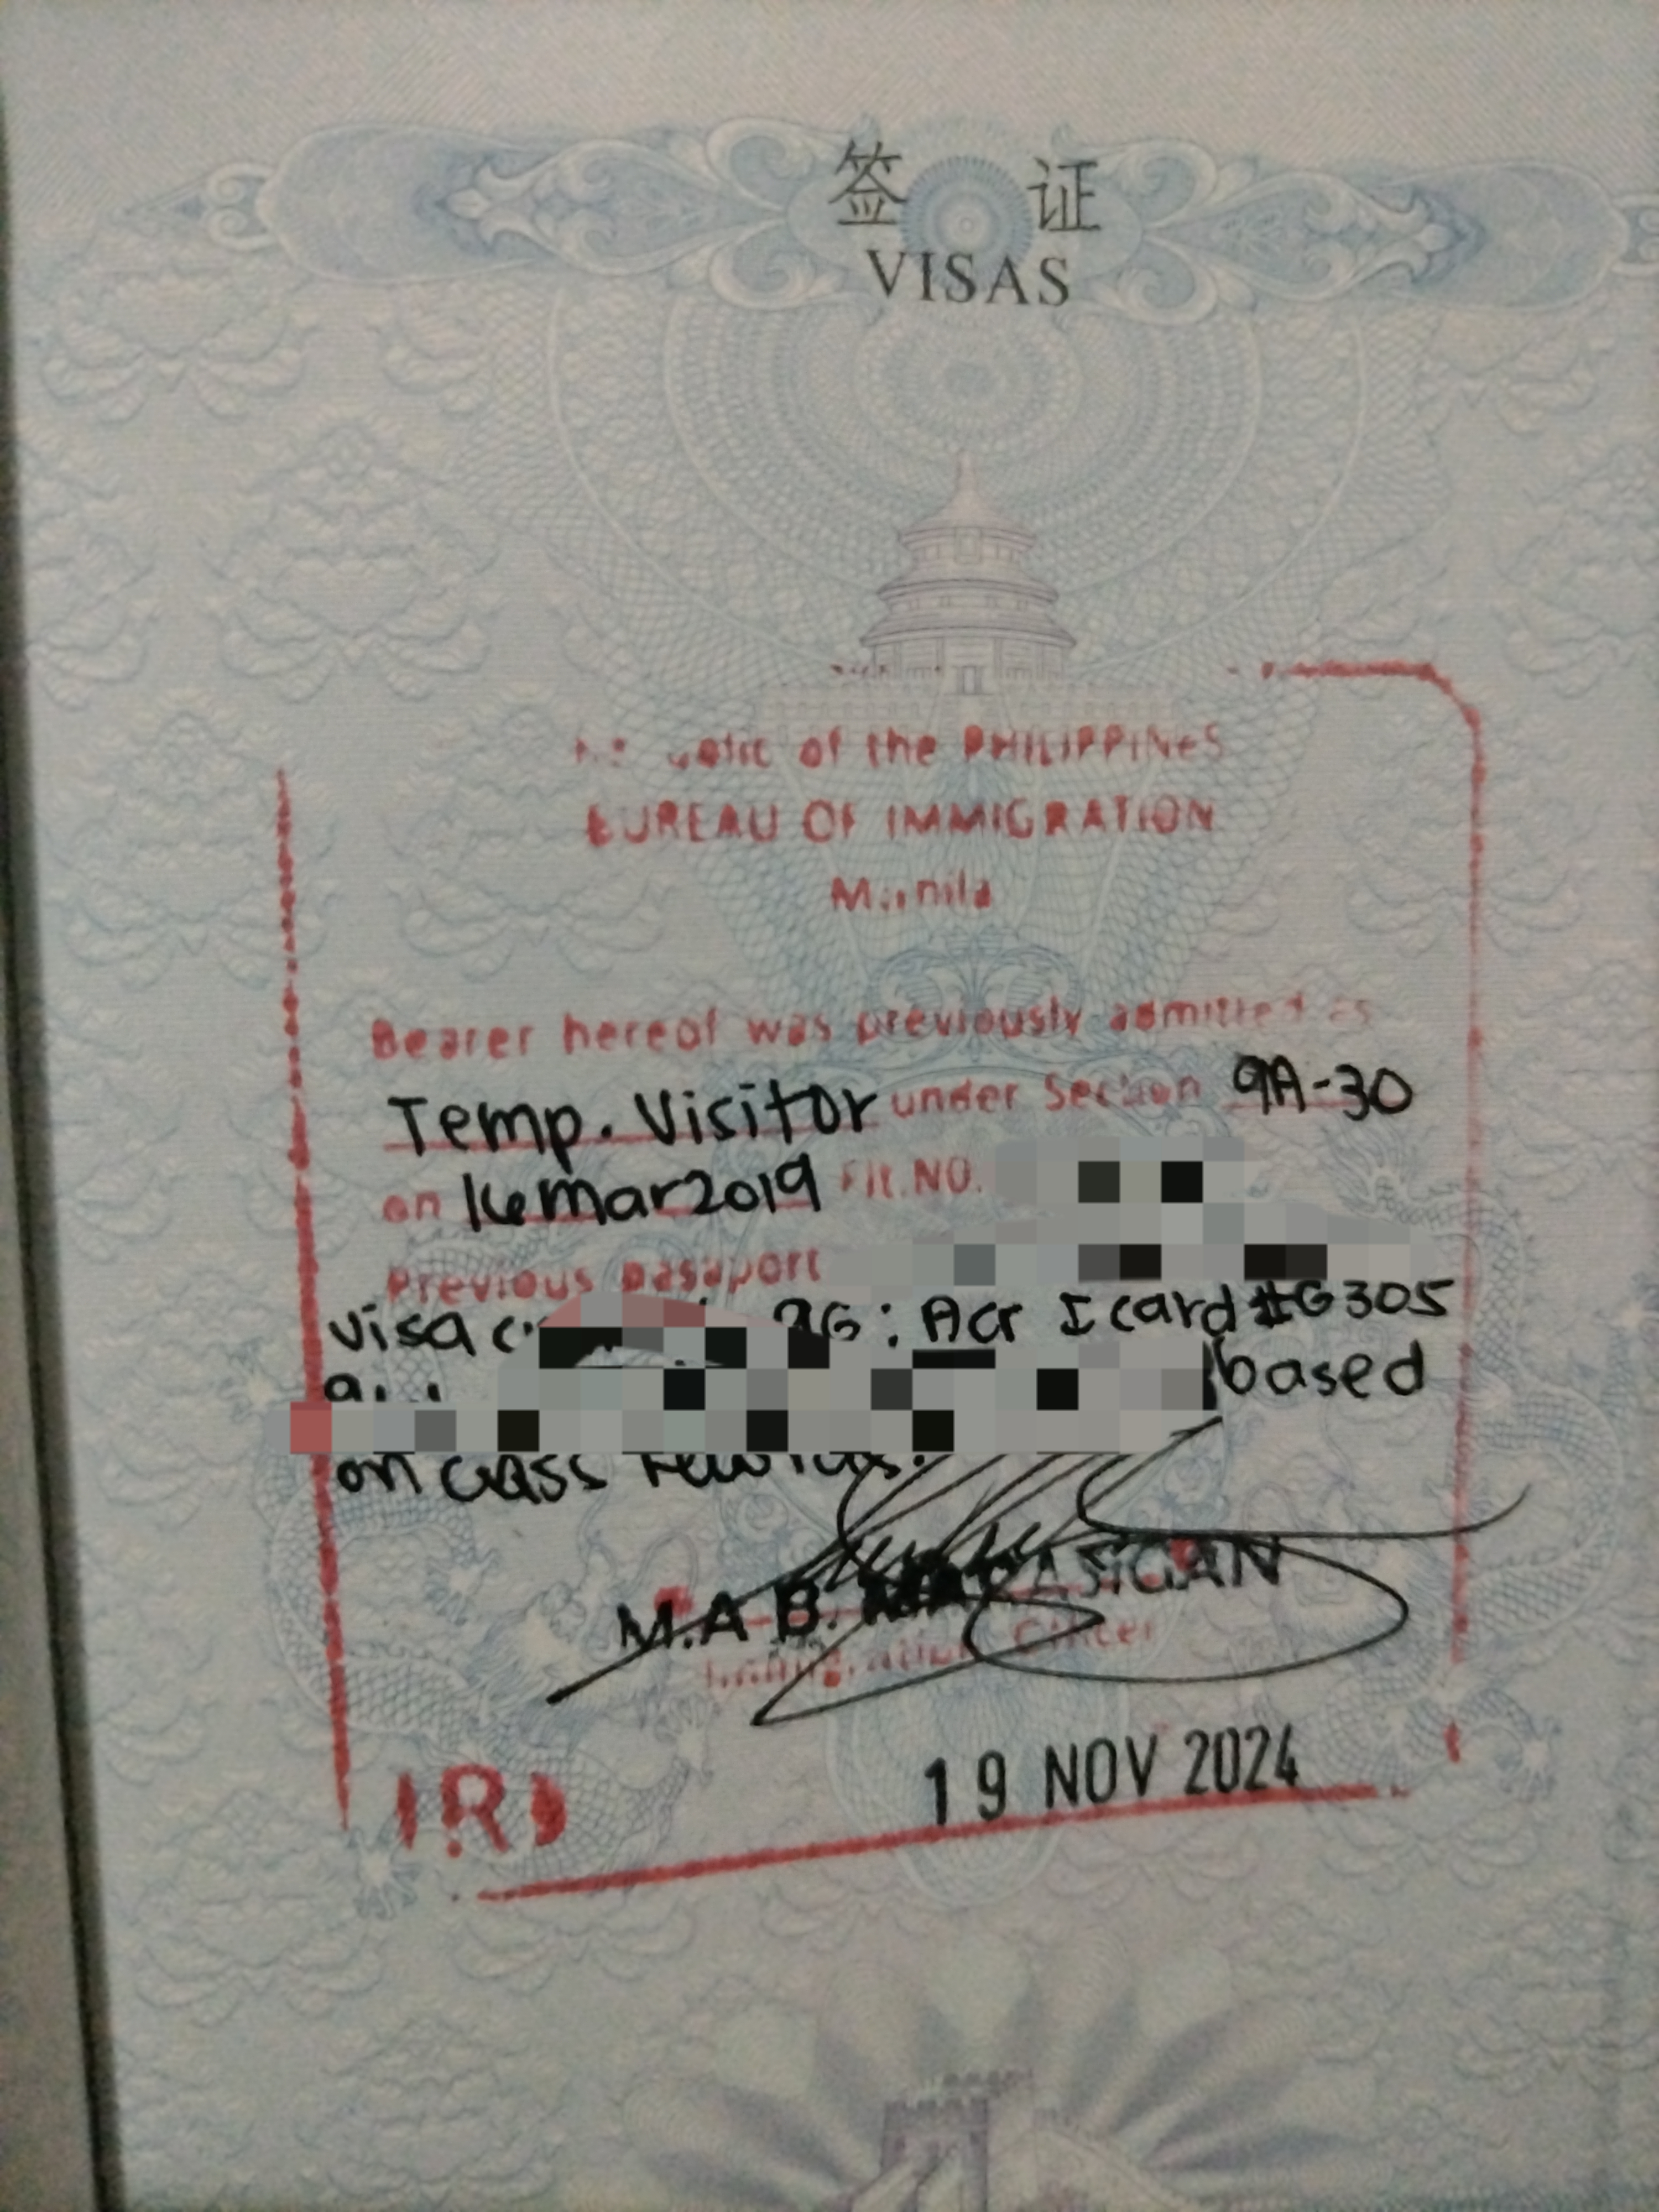 签 证
VISAS
of the PHILIPPINES
BUREAU OF IMMIGRATION
Manila
Bearer hereof was previously admitted as
Temp. Visitor under Section 9A-30
on 16 Mar 2019 Flt. NO.
Previous passport
Visa 9G: Acr I card #G305
based
on class
M.A B.
Immigration Officer
19 NOV 2024